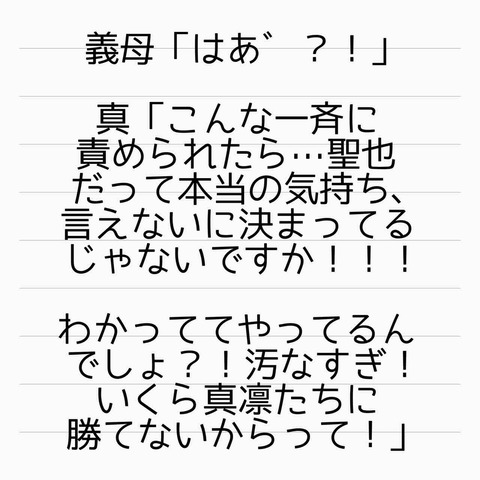 義母「はあ゛？！」
真「こんな一斉に
責められたら…聖也
だって本当の気持ち、
言えないに決まってる
じゃないですか！！！
わかっててやってるん
でしょ？！汚なすぎ！
いくら真凛たちに
勝てないからって！」